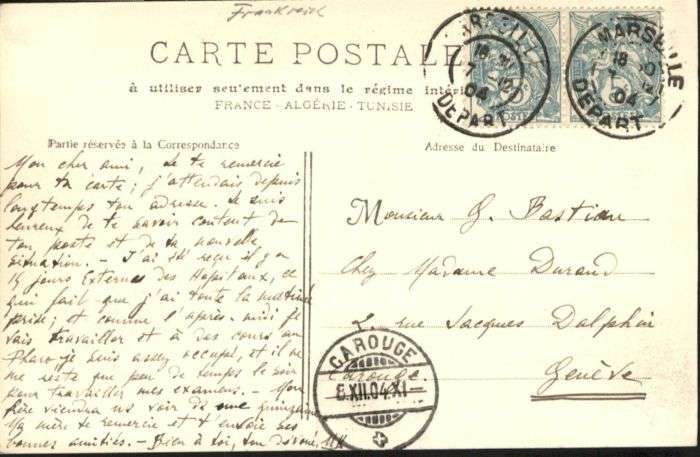 Frankreich
CARTE POSTALE
à utiliser seulement dans le régime intéri
FRANCE - ALGÉRIE - TUNISIE
MARSEILLE
18
7 - 12
04
DEPART
POSTE
MARSEILLE
18
04
DEPART
Partie réservée à la Correspondance
Adresse du Destinataire
Mon cher ami, Je te remercie
pour ta carte ; j'attendais depuis
longtemps ton adresse. Je suis
heureux de te savoir content de
ton poste et de ta nouvelle
situation. - J'ai été reçu il y a
15 jours Externe des Hopitaux, ce
qui fait que j'ai toute la matinée
prise ; et comme l'après-midi je
vais travailler et à des cours au
Pharo je suis assez occupé, et il ne
me reste que peu de temps le soir
pour travailler mes examens. - Mon
père viendra us voir ds une quinzaine
My mère te remercie et t'envoie ses
bonnes amitiés. - Bien à toi, ton dévoué,
Monsieur G. Bastian
Chez Madame Durand
2, rue Jacques Dalphin
Carouge.
Genève
CAROUGE
8.XII.04.XI-